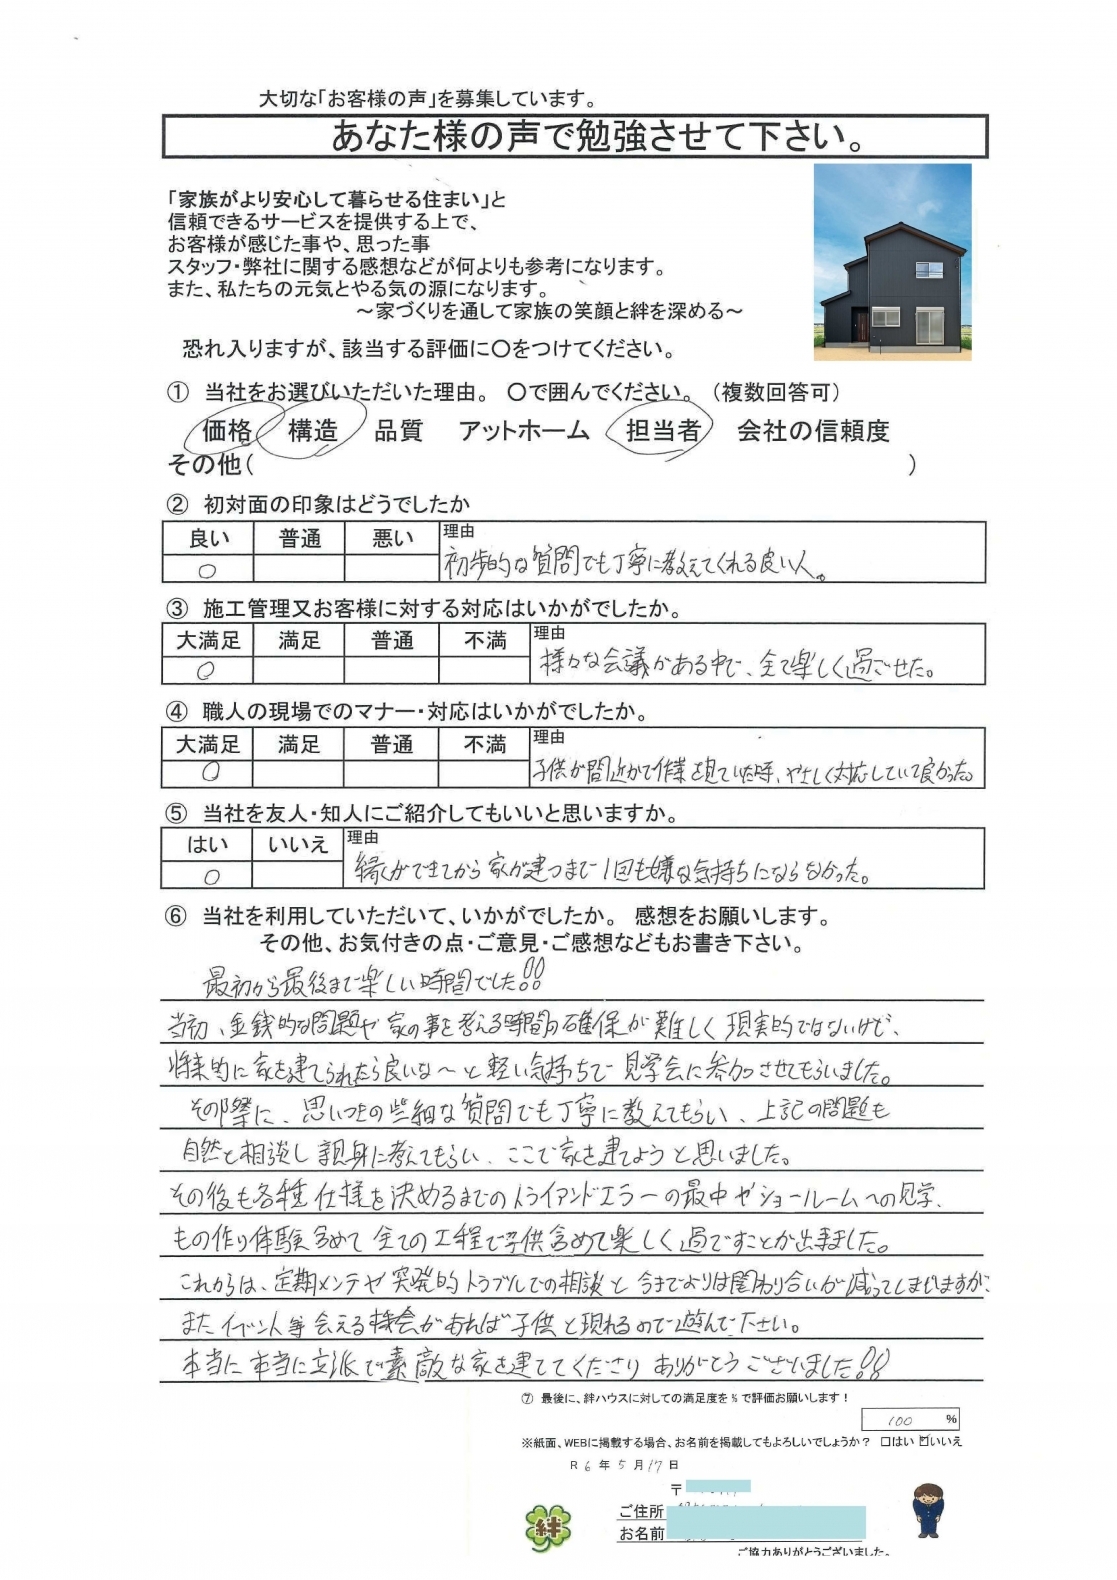 大切な「お客様の声」を募集しています。
あなた様の声で勉強させて下さい。
「家族がより安心して暮らせる住まい」と
信頼できるサービスを提供する上で、
お客様が感じた事や、思った事
スタッフ・弊社に関する感想などが何よりも参考になります。
また、私たちの元気とやる気の源になります。
～家づくりを通して家族の笑顔と絆を深める～
恐れ入りますが、該当する評価に〇をつけてください。
① 当社をお選びいただいた理由。 〇で囲んでください。 (複数回答可)
価格 構造 品質 アットホーム 担当者 会社の信頼度
その他( )
② 初対面の印象はどうでしたか
良い 普通 悪い 理由
○ 初歩的な質問でも丁寧に教えてくれる良い人。
③ 施工管理又お客様に対する対応はいかがでしたか。
大満足 満足 普通 不満 理由
○ 様々な会議がある中で、全て楽しく過ごせた。
④ 職人の現場でのマナー・対応はいかがでしたか。
大満足 満足 普通 不満 理由
○ 子供が間近かで作業を見ていた時、やさしく対応していて良かった。
⑤ 当社を友人・知人にご紹介してもいいと思いますか。
はい いいえ 理由
○ 縁ができてから家が建つまで1回も嫌な気持ちにならなかった。
⑥ 当社を利用していただいて、いかがでしたか。 感想をお願いします。
その他、お気付きの点・ご意見・ご感想などもお書き下さい。
最初から最後まで楽しい時間でした!!
当初、金銭的な問題や家の事を考える時間の確保が難しく現実的ではないけど、
将来的に家を建てられたら良いな〜と軽い気持ちで見学会に参加させてもらいました。
その際に、思いつきの些細な質問でも丁寧に教えてもらい、上記の問題も
自然と相談し親身に考えてもらい、ここで家を建てようと思いました。
その後も各種仕様を決めるまでのトライアンドエラーの最中やショールームへの見学、
もの作り体験含めて全ての工程で子供含めて楽しく過ごすことが出来ました。
これからは、定期メンテや突発的トラブルでの相談と今までよりは関わり合いが減ってしまいますが、
またイベント等会える機会があれば子供と現れるので遊んで下さい。
本当に本当に立派で素敵な家を建ててくださりありがとうございました!!
⑦ 最後に、絆ハウスに対しての満足度を%で評価お願いします！
100 %
※紙面、WEBに掲載する場合、お名前を掲載してもよろしいでしょうか？ □はい ☑いいえ
R 6 年 5 月 17 日
〒
ご住所
お名前
絆
ご協力ありがとうございました。